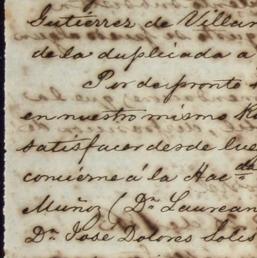 Gutierrez de Villan
de la duplicada a
Por de pronto
en nuestro mismo
satisfacer desde lue
concierne á la Hacda
Muñoz (Dn Laurean
Dn José Dolores Solis